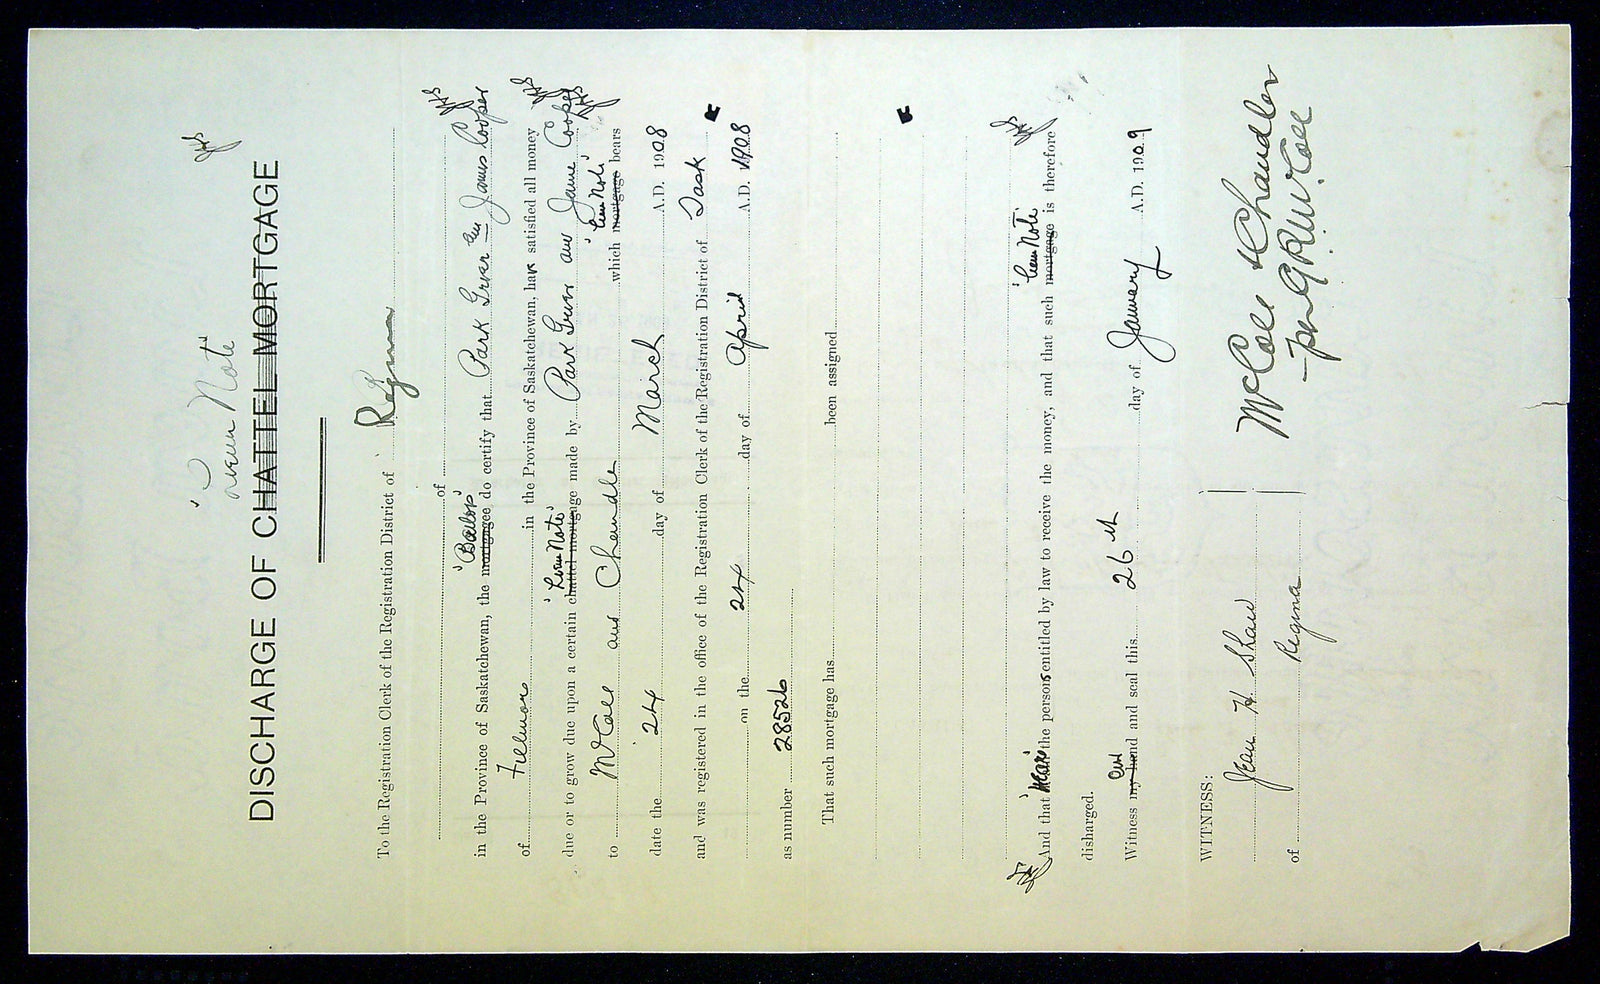 "Lien Note"
DISCHARGE OF CHATTEL MORTGAGE
To the Registration Clerk of the Registration District of Regina
of
"Bailor"
in the Province of Saskatchewan, the mortgagee do certify that Park Grover and James Cooper
of Fillmore in the Province of Saskatchewan, have satisfied all money
"Lien Note"
due or to grow due upon a certain chattel mortgage made by Park Grover and James Cooper
"Lien Note"
to McCall and Chandler which mortgage bears
date the 24 day of March A.D. 1908
and was registered in the office of the Registration Clerk of the Registration District of Sask
on the 24 day of April A.D. 1908
as number 28526
That such mortgage has been assigned
"Lien Note"
And that "we are" the persons entitled by law to receive the money, and that such mortgage is therefore
disharged.
our
Witness my hand and seal this 26th day of January A.D. 1909
WITNESS:
Jean H Shaw
of Regina
McCall & Chandler
per